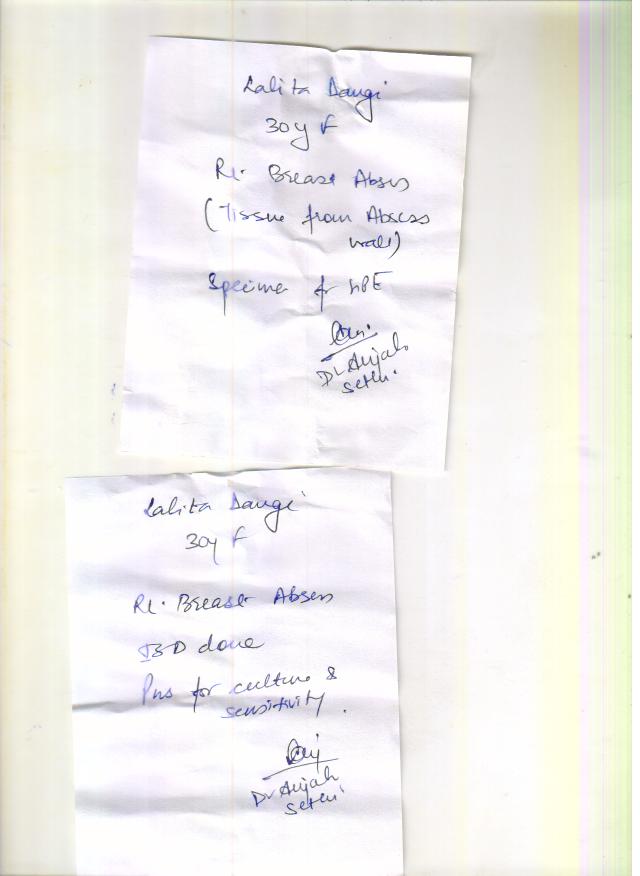 Lalita Dangi
30y F
Rt. Breast Abscess
(Tissue from Abscess
wall)
Specimen for HPE
Dr Anjali
Sethi.
Lalita Dangi
30y F
Rt. Breast Abscess
I&D done
Pus for culture &
sensitivity.
Dr Anjali
Sethi